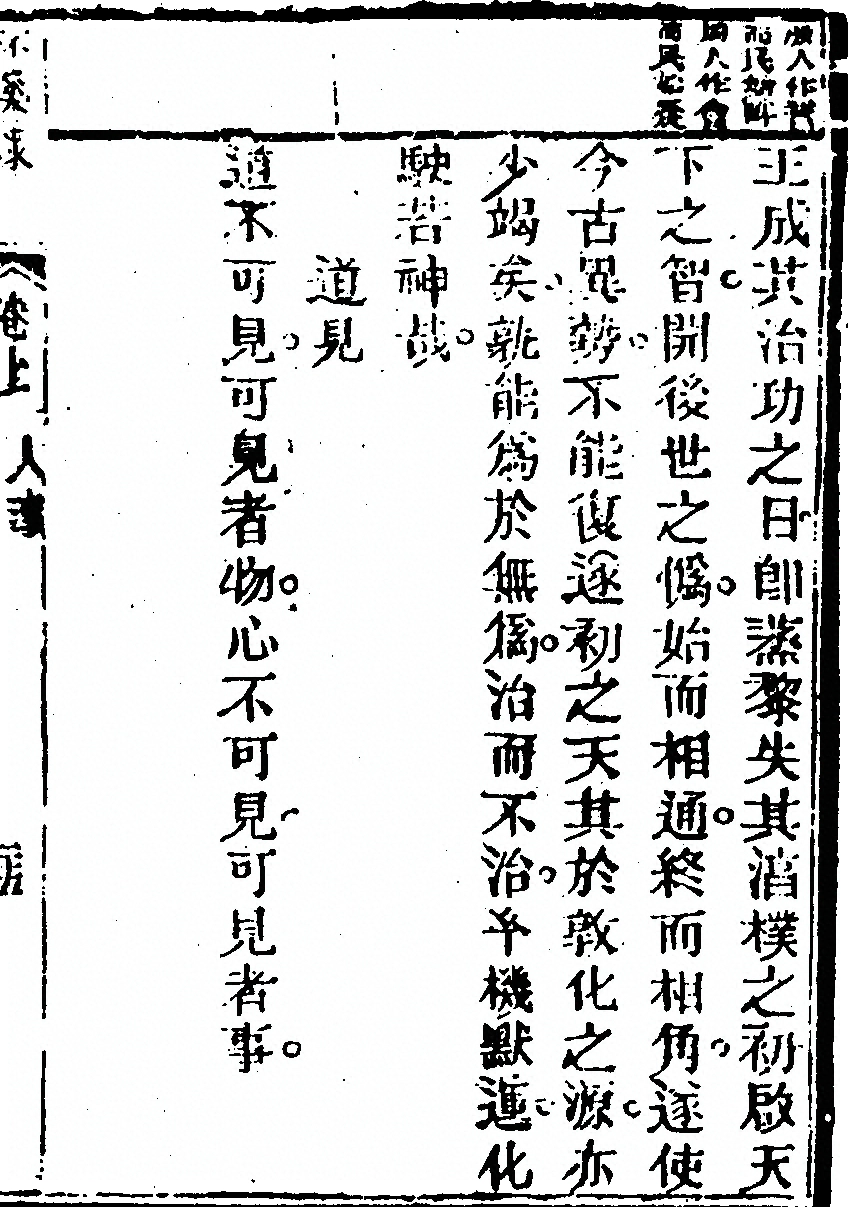 殷人作誓
而民始畔
周人作會
而民始疑
王成其治功之日卽蒸黎失其湻樸之初啟天
下之智開後世之僞始而相通終而相角遂使
今古異勢不能復遂初之天其於敦化之源亦
少竭矣孰能爲於無爲治而不治乎機默運化
駛若神哉
道見
道不可見可見者物心不可見可見者事
卷上